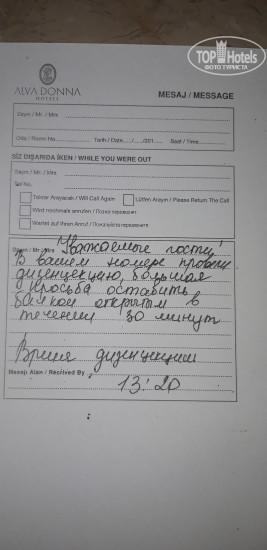 TOPHotels
ФОТО ТУРИСТА
ALVA DONNA
HOTELS
MESAJ / MESSAGE
Sayın / Mr. / Mrs
Oda / Room No. Tarih / Date..../..../201.... Saat / Time
SİZ DIŞARIDA İKEN / WHILE YOU WERE OUT
Sayın / Mr. / Mrs.
Tel No.
Tekrar Arayacak / Will Call Again
Lütfen Arayın / Please Return The Call
Wird nochmals anrufen / Позже перезвонит
Wartet auf Ihren Anruf / Пожалуйста перезвоните
Sayın / Mr. / Mrs
Уважаемые гости!
В вашем номере провели
дизенцекцию, большая
просьба оставить
балкон открытым в
течении 30 минут
Время дизенцекции
Mesajı Alan / Received By
13:20